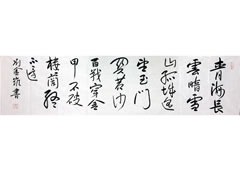 青海長
雲暗雪
山孤城遥
望玉門
關黄沙
百戰穿金
甲不破
樓蘭終
不還
書